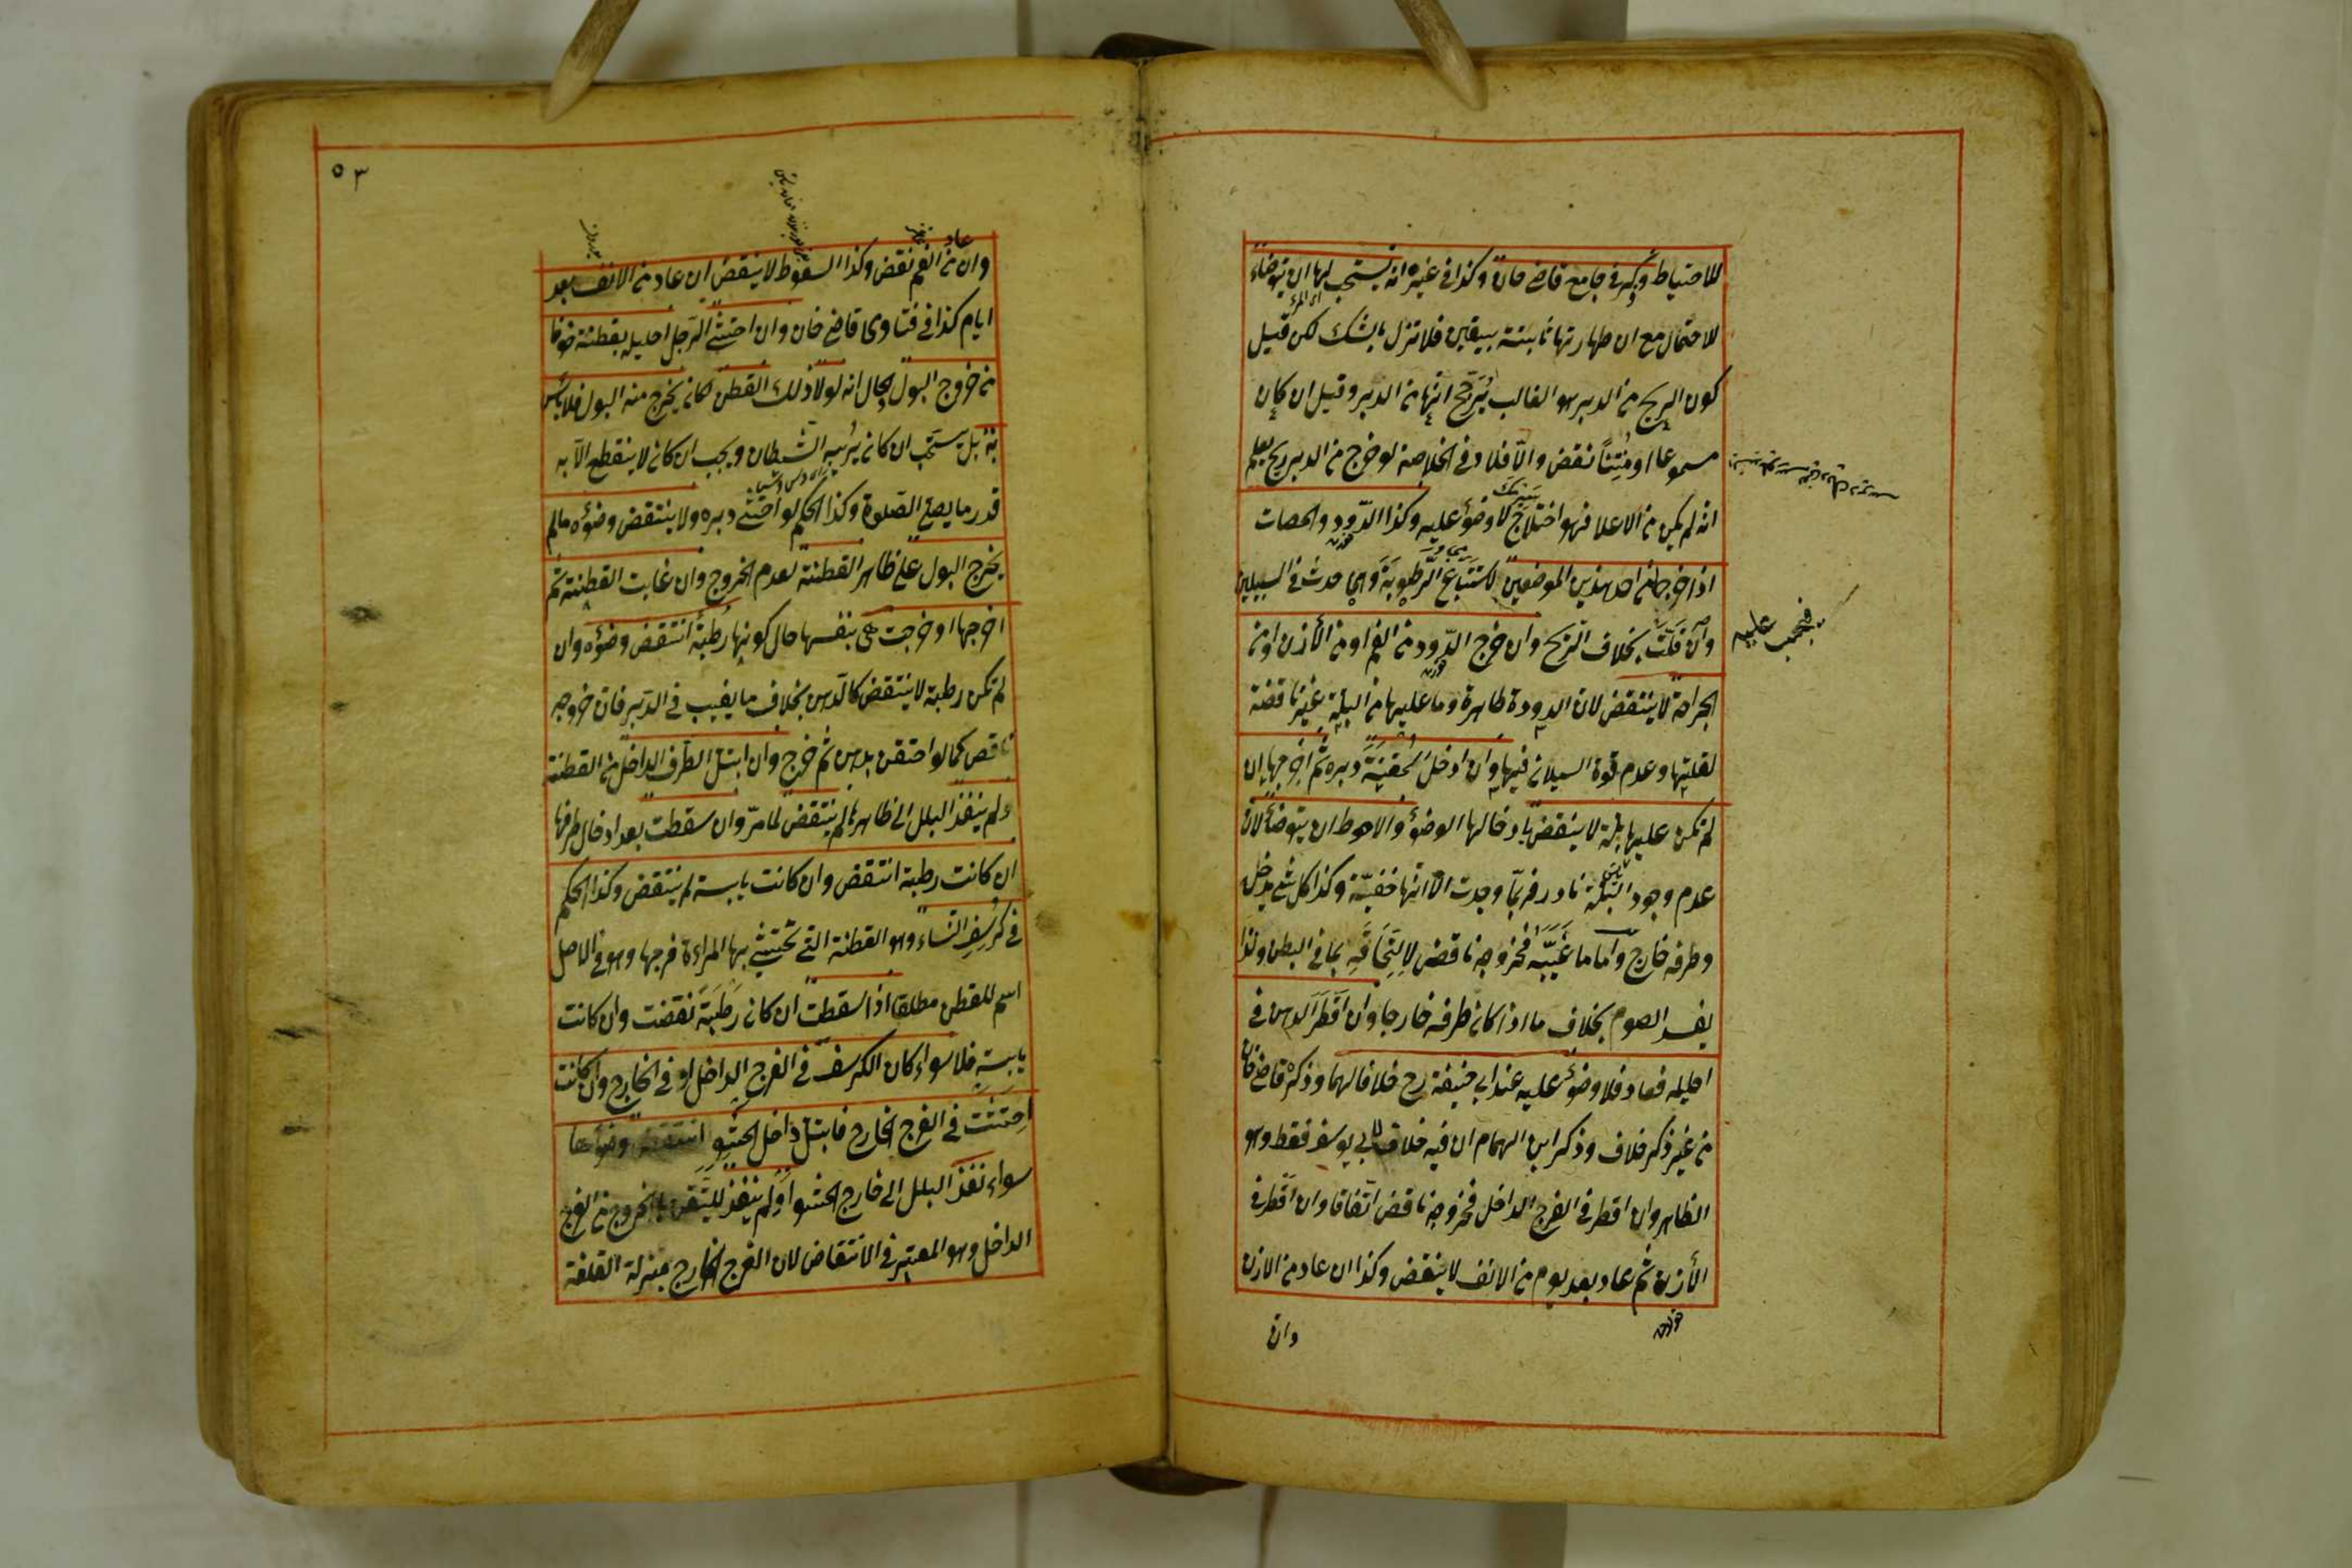 للاحتياط وذكر في جامع قاضي خان وكذا في غيره انه يستحب لها ان يتوضاء
للاحتمال مع ان طهارتها ثابتة بيقين فلا تزل بالشك لكن قيل
كون الريح من الدبر هو الغالب يرجح انها من الدبر وقيل ان كان
مسموعا او منتنا نقض والّا فلا و في الخلاصة لو خرج من الدبر ريح يعلم
انه لم يكن من الاعلا فهو اختلاج لا وضوء عليه وكذا الدود والحصات
اذا خرجا من احد هذين الموضعين لاستتباع الرطوبة وهي حدث في السبيلين
وان قلّت بخلاف الريح وان خرج الدود من الفم او من الأذن او من
الجراحة لا ينتقض لان الدودة طاهرة وما عليها من البلة غير ناقضة
لقلتها وعدم قوة السيلان فيها وان ادخل المحقنة دبره ثم اخرجها ان
لم تكن عليها بلة لا ينقض بادخالها الوضوء والاحوط ان يتوضأ لان
عدم وجود البلة نادر فربما وجدت الا انها خفيّة وكذا كل شئ يدخل
وطرفه خارج واما ما غيّبه فخروجه ناقض لالتحاقه بما في البطن ولذا
يفسد الصوم بخلاف ما اذا كان طرفه خارجا وان اقطر الدهن في
احليله فعاد فلا وضوء عليه عند ابي حنيفة رح خلافا لهما وذكره قاضي خان
من غير ذكر خلاف وذكر ابن الهمام ان فيه خلاف لابي يوسف فقط وهو
الظاهر وان اقطر في الفرج الداخل فخروجه ناقض اتفاقا وان اقطر في
الأذن ثم عاد بعد يوم من الانف لا ينقض وكذا ان عاد من الاذن
وان
فيجب عليه
٥٣
عاد
وان من الفم نقض وكذا السعوط لا ينقض ان عاد من الانف بعد
ايام كذا في فتاوى قاضي خان وان احتشى الرجل احليله بقطنة خوفا
من خروج البول بحال انه لولا ذلك القطن لكان يخرج منه البول فلا بأس
به بل يستحب ان كان يريبه الشيطان ويجب ان كان لا ينقطع الا به
قدر ما يصلي الصلوة وكذا الحكم لو احتشى دبره ولا ينتقض وضوءه ما لم
يخرج البول على ظاهر القطنة لعدم الخروج وان غابت القطنة ثم
اخرجها او خرجت هي بنفسها حال كونها رطبة انتقض وضوءه وان
لم تكن رطبة لا ينتقض كالدهن بخلاف ما يغيب في الدبر فان خروجه
ناقض كما لو احتقن بدهن ثم خرج وان ابتل الطرف الداخل من القطنة
ولم ينفذ البلل الى ظاهرها لم ينتقض لما مرّ وان سقطت بعد ادخال طرفها
ان كانت رطبة انتقض وان كانت يابسة لم ينتقض وكذا الحكم
في كرسف النساء وهو القطنة التي تحتشي بها المراءة فرجها وهو في الاصل
اسم للقطن مطلقا اذا سقطت ان كان رطبة نقضت وان كانت
يابسة فلا سواء كان الكرسف في الفرج الداخل او في الخارج وان كانت
احتشت في الفرج الخارج فابتل داخل الحشو انتقض وضوءها
سواء نفذ البلل الى خارج الحشو او لم ينفذ للتيقن بالخروج من الفرج
الداخل وهو المعتبر في الانتقاض لان الفرج الخارج بمنزلة القلفة